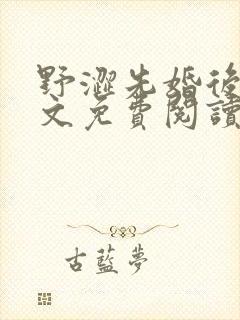 野澀先婚後
文免費閱讀
古藍夢